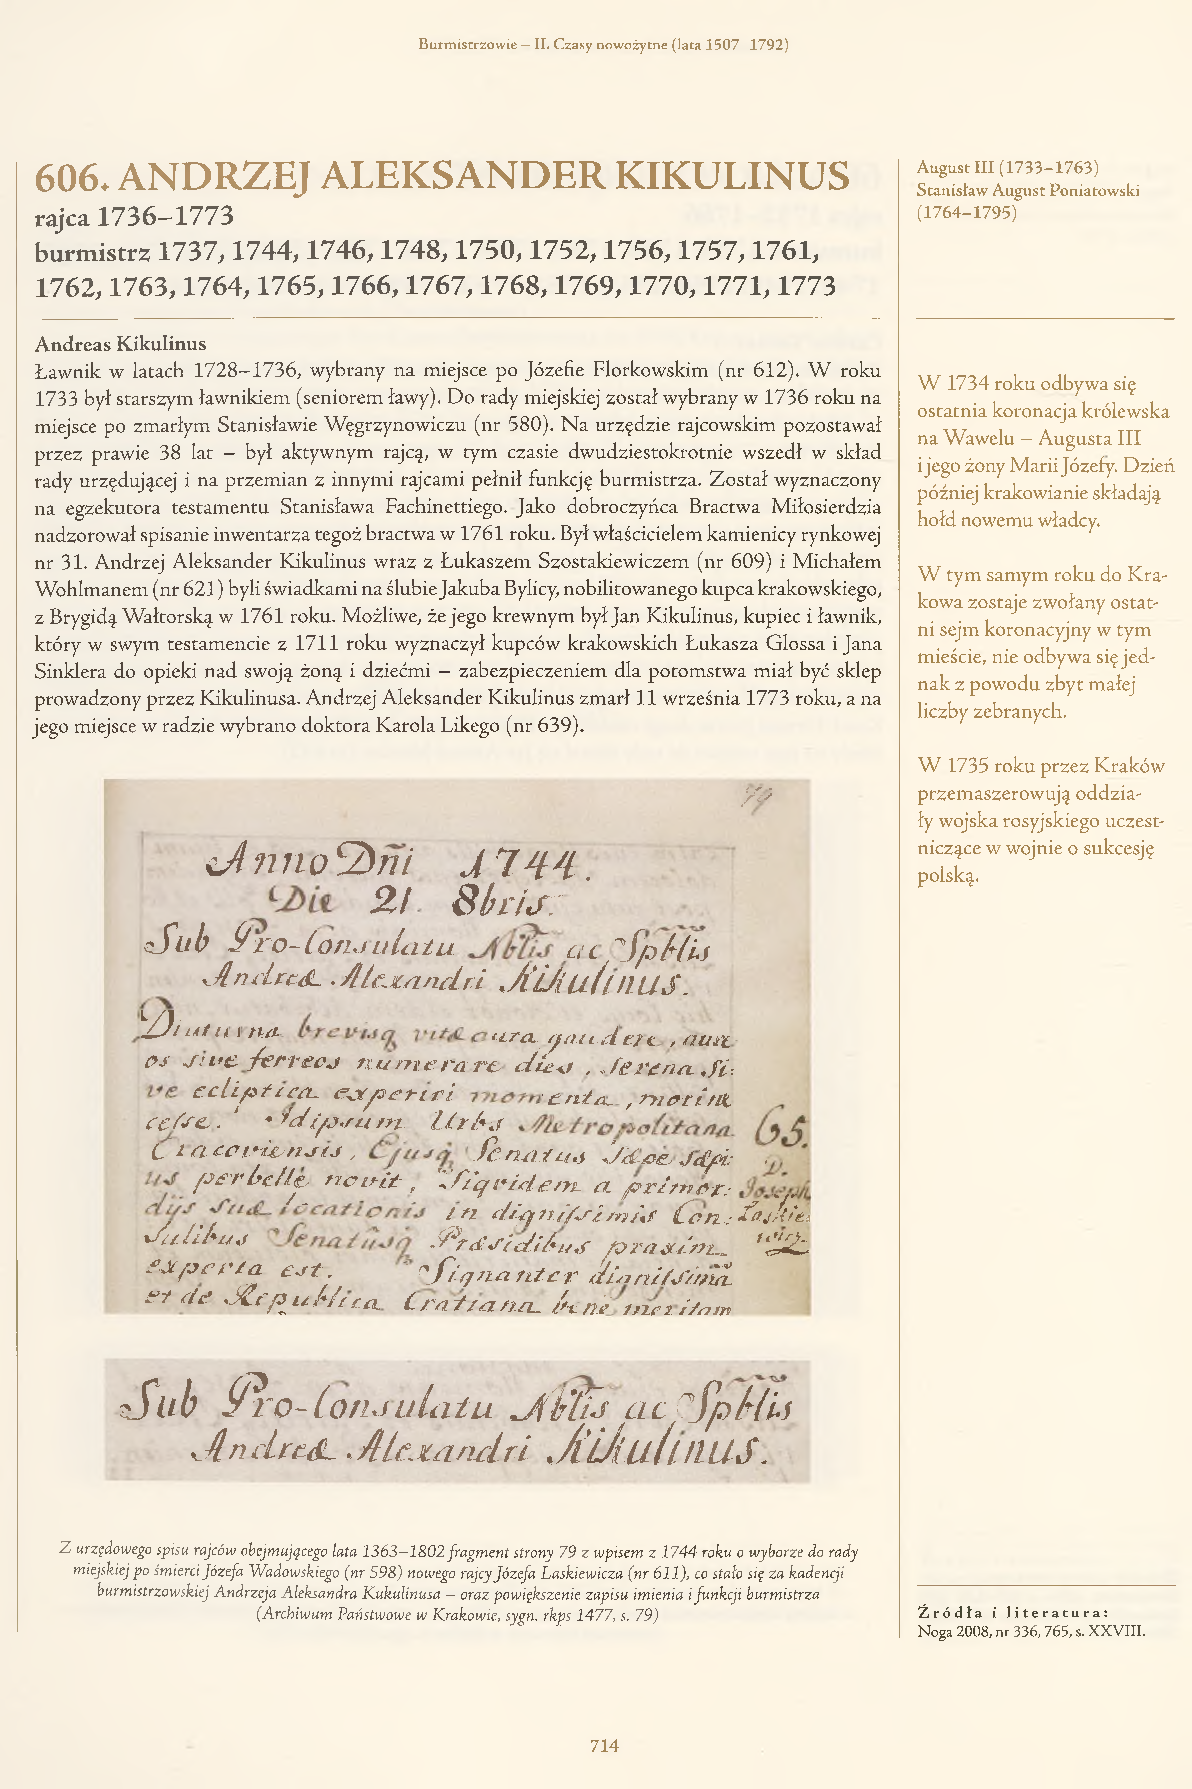 Burmistrzowie – II. Czasy nowożytne (lata 1507–1792)
606. ANDRZEJ ALEKSANDER KIKULINUS
rajca 1736–1773
burmistrz 1737, 1744, 1746, 1748, 1750, 1752, 1756, 1757, 1761,
1762, 1763, 1764, 1765, 1766, 1767, 1768, 1769, 1770, 1771, 1773
Andreas Kikulinus
Ławnik w latach 1728–1736, wybrany na miejsce po Józefie Florkowskim (nr 612). W roku
1733 był starszym ławnikiem (seniorem ławy). Do rady miejskiej został wybrany w 1736 roku na
miejsce po zmarłym Stanisławie Węgrzynowiczu (nr 580). Na urzędzie rajcowskim pozostawał
przez prawie 38 lat – był aktywnym rajcą, w tym czasie dwudziestokrotnie wszedł w skład
rady urzędującej i na przemian z innymi rajcami pełnił funkcję burmistrza. Został wyznaczony
na egzekutora testamentu Stanisława Fachinettiego. Jako dobroczyńca Bractwa Miłosierdzia
nadzorował spisanie inwentarza tegoż bractwa w 1761 roku. Był właścicielem kamienicy rynkowej
nr 31. Andrzej Aleksander Kikulinus wraz z Łukaszem Szostakiewiczem (nr 609) i Michałem
Wohlmanem (nr 621) byli świadkami na ślubie Jakuba Bylicy, nobilitowanego kupca krakowskiego,
z Brygidą Wałtorską w 1761 roku. Możliwe, że jego krewnym był Jan Kikulinus, kupiec i ławnik,
który w swym testamencie z 1711 roku wyznaczył kupców krakowskich Łukasza Glossa i Jana
Sinklera do opieki nad swoją żoną i dziećmi – zabezpieczeniem dla potomstwa miał być sklep
prowadzony przez Kikulinusa. Andrzej Aleksander Kikulinus zmarł 11 września 1773 roku, a na
jego miejsce w radzie wybrano doktora Karola Likego (nr 639).
79
Anno Dñi 1744.
Die 21. 8bris.
Sub Pro-Consulatu Nblis ac Spblis
Andreæ Alexandri Kikulinus.
Diuturna brevisq vitæ aura gaudere, aure
os sive ferreos numerare dies, serena si:
ve ecliptica experiri momenta, mori ne
cesse. Idipsum Urbs Metropolitana
Cracoviensis, Ejusq Senatus sæpe sæpi:
us perbellè novit, Siquidem a primor:
dijs suæ locationis in dignissimis Con:
sulibus Senatusq Præsidibus praxim
experta est. Signanter dignissimã
et de Republica Cratiana bene meritam
65.
D.
Joseph
Laskie:
wicz
Sub Pro-Consulatu Nblis ac Spblis
Andreæ Alexandri Kikulinus.
Z urzędowego spisu rajców obejmującego lata 1363–1802 fragment strony 79 z wpisem z 1744 roku o wyborze do rady
miejskiej po śmierci Józefa Wadowskiego (nr 598) nowego rajcy Józefa Łaskiewicza (nr 611), co stało się za kadencji
burmistrzowskiej Andrzeja Aleksandra Kukulinusa – oraz powiększenie zapisu imienia i funkcji burmistrza
(Archiwum Państwowe w Krakowie, sygn. rkps 1477, s. 79)
August III (1733–1763)
Stanisław August Poniatowski
(1764–1795)
W 1734 roku odbywa się
ostatnia koronacja królewska
na Wawelu – Augusta III
i jego żony Marii Józefy. Dzień
później krakowianie składają
hołd nowemu władcy.
W tym samym roku do Kra-
kowa zostaje zwołany ostat-
ni sejm koronacyjny w tym
mieście, nie odbywa się jed-
nak z powodu zbyt małej
liczby zebranych.
W 1735 roku przez Kraków
przemaszerowują oddzia-
ły wojska rosyjskiego uczest-
niczące w wojnie o sukcesję
polską.
Źródła i literatura:
Noga 2008, nr 336, 765, s. XXVIII.
714